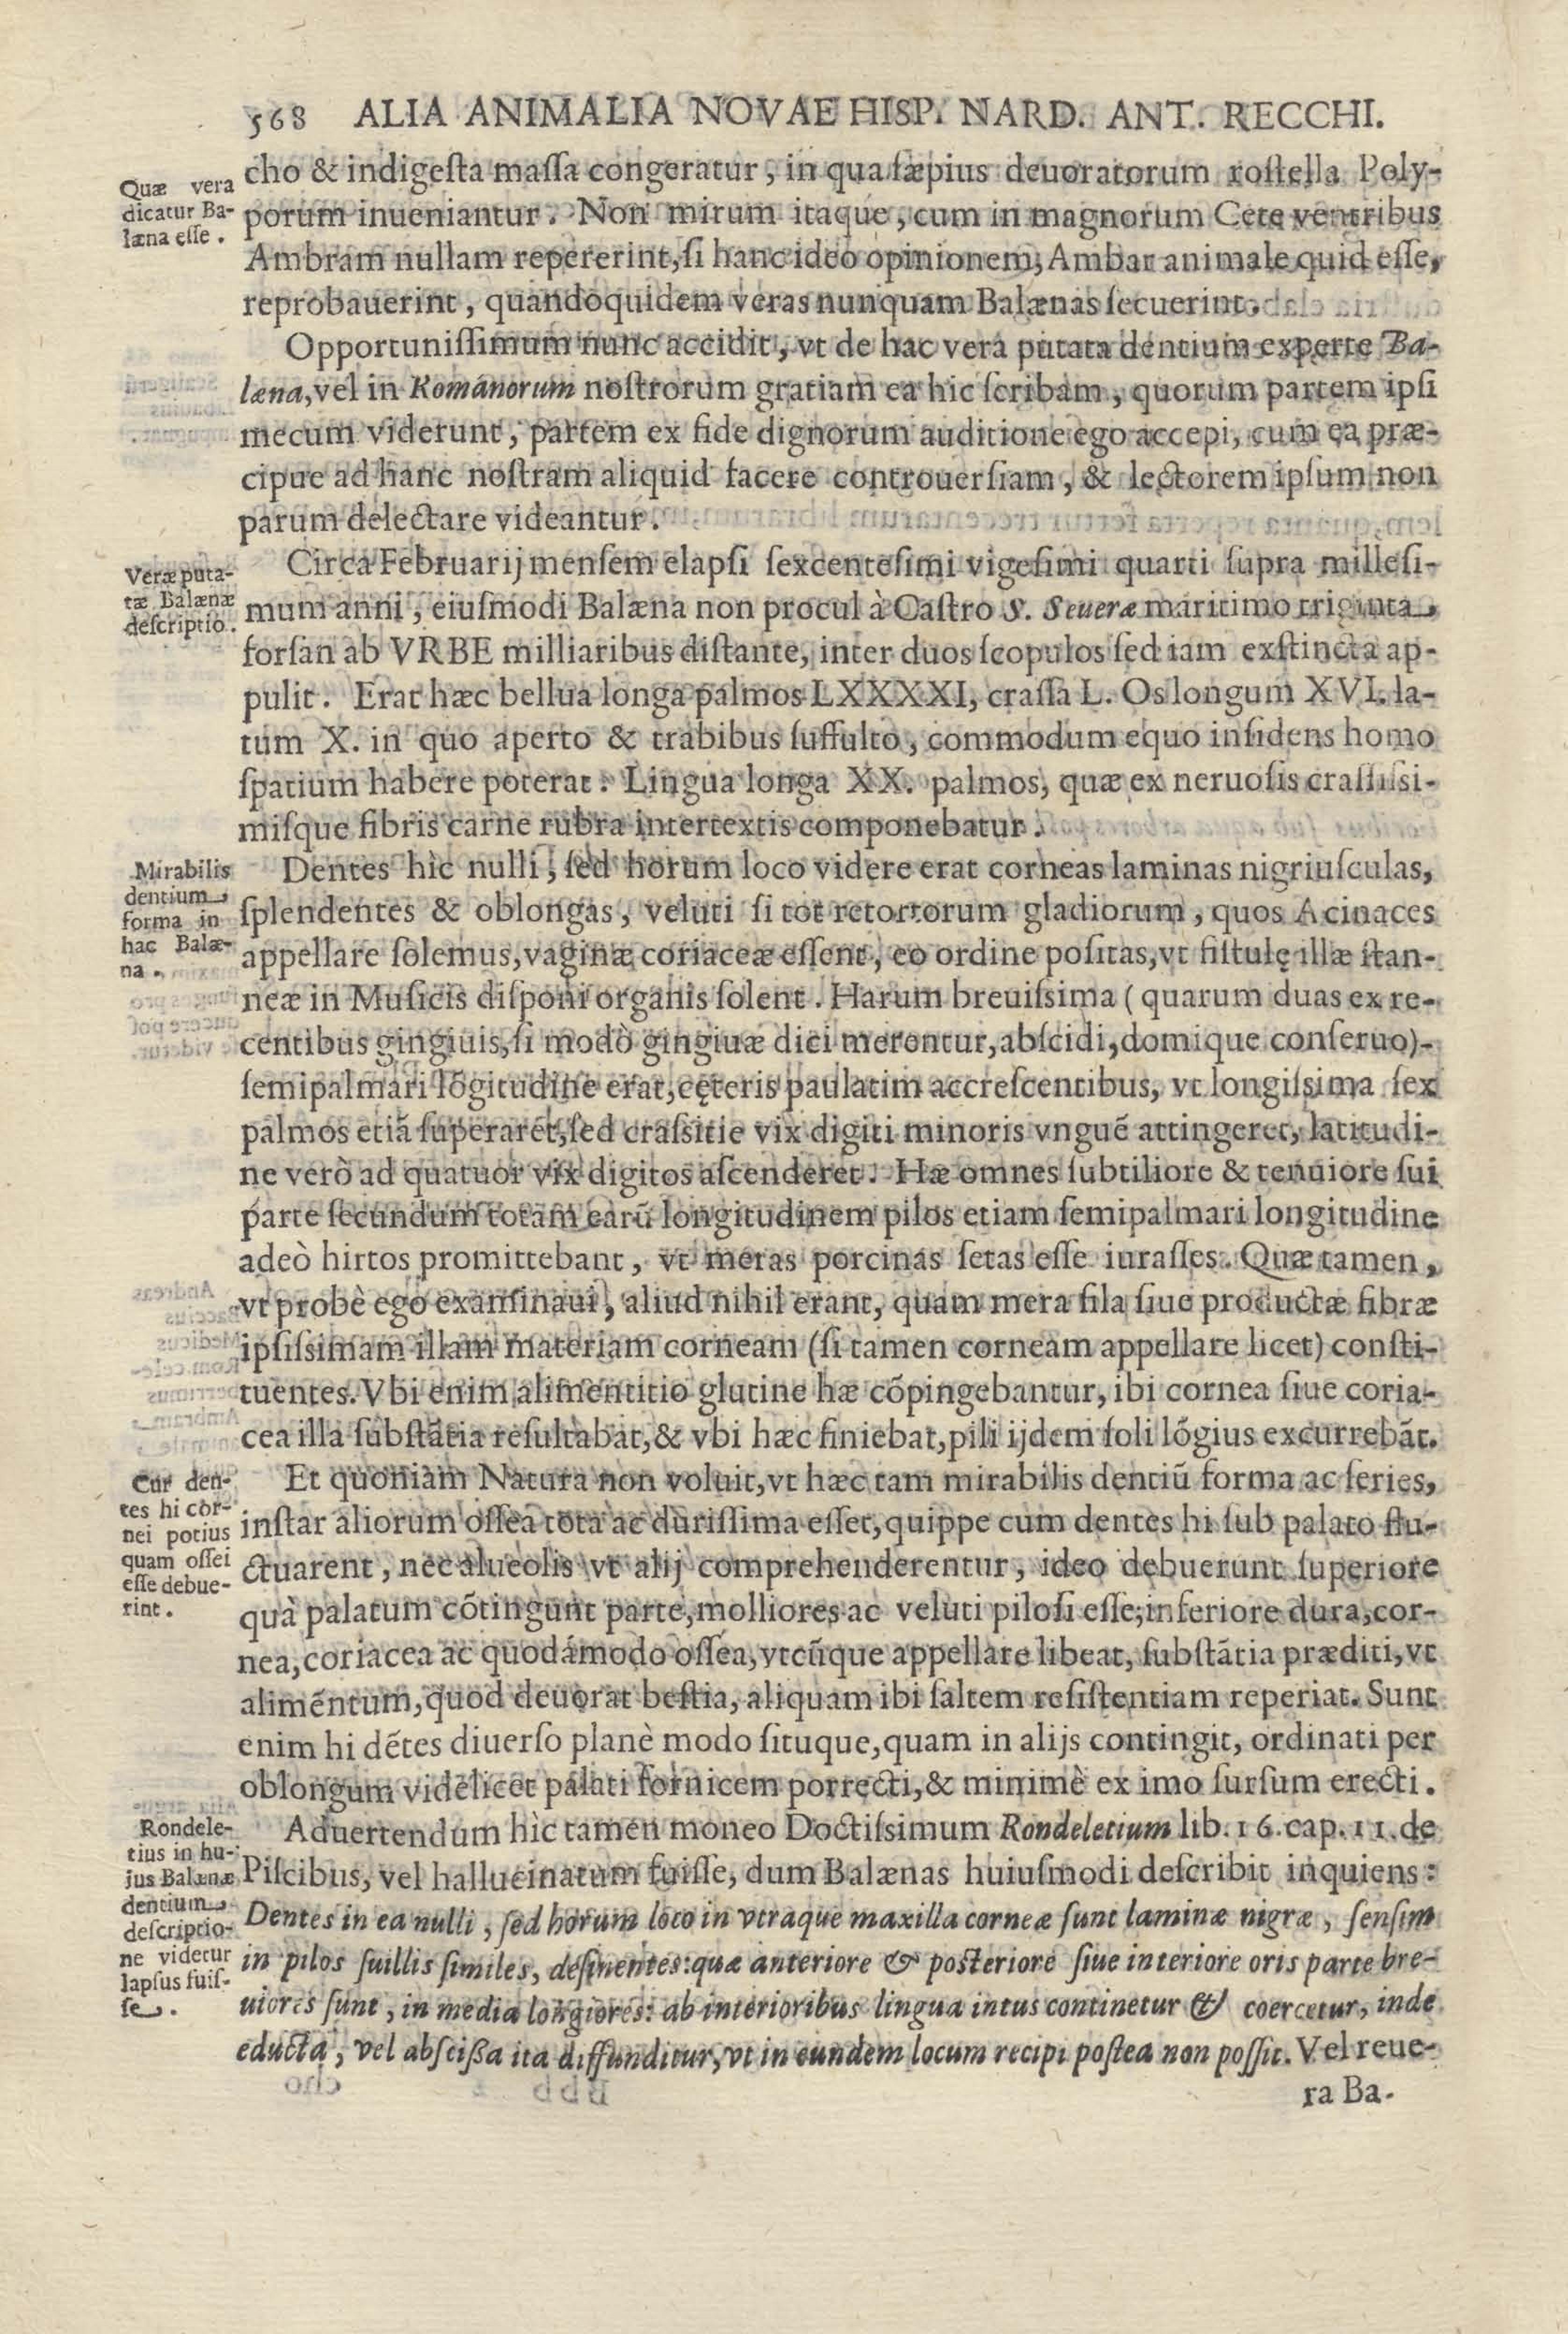 568 ALIA ANIMALIA NOVAE HISP. NARD. ANT. RECCHI.
Quæ vera
dicatur Ba-
læna eſſe.
cho & indigeſta maſſa congeratur, in qua ſæpius deuoratorum roſtella Poly-
porum inueniantur. Non mirum itaque, cum in magnorum Cete ventribus
Ambram nullam repererint, ſi hanc ideo opinionem, Ambar animale quid eſſe,
reprobauerint, quandoquidem veras nunquam Balænas ſecuerint.
Opportuniſſimum nunc accidit, vt de hac vera putata dentium experte Ba-
læna, vel in Romanorum noſtrorum gratiam ea hic ſcribam, quorum partem ipſi
mecum viderunt, partem ex fide dignorum auditione ego accepi, cum ea præ-
cipue ad hanc noſtram aliquid facere controuerſiam, & lectorem ipſum non
parum delectare videantur.
Veræ puta-
tæ Balænæ
deſcriptio.
Circa Februarij menſem elapſi ſexcenteſimi vigeſimi quarti ſupra milleſi-
mum anni, eiuſmodi Balæna non procul à Caſtro S. Seueræ maritimo triginta
forſan ab VRBE milliaribus diſtante, inter duos ſcopulos ſed iam exſtincta ap-
pulit. Erat hæc bellua longa palmos LXXXXI, craſſa L. Os longum XVI. la-
tum X. in quo aperto & trabibus ſuffulto, commodum equo inſidens homo
ſpatium habere poterat. Lingua longa XX. palmos, quæ ex neruoſis craſſiſsi-
miſque fibris carne rubra intertextis componebatur.
Mirabilis
dentium
forma in
hac Balæ-
na.
Dentes hìc nulli, ſed horum loco videre erat corneas laminas nigriuſculas,
ſplendentes & oblongas, veluti ſi tot retortorum gladiorum, quos Acinaces
appellare ſolemus, vaginæ coriaceæ eſſent, eo ordine poſitas, vt fiſtulę illæ ſtan-
neæ in Muſicis diſponi organis ſolent. Harum breuiſsima (quarum duas ex re-
centibus gingiuis, ſi modò gingiuæ dici merentur, abſcidi, domique conſeruo)
ſemipalmari lõgitudine erat, cęteris paulatim accreſcentibus, vt longiſsima ſex
palmos etiã ſuperarét, ſed craſsitie vix digiti minoris vnguẽ attingeret, latitudi-
ne verò ad quatuor vix digitos aſcenderet. Hæ omnes ſubtiliore & tenuiore ſui
parte ſecundum totam earũ longitudinem pilos etiam ſemipalmari longitudine
adeò hirtos promittebant, vt meras porcinas ſetas eſſe iuraſſes. Quæ tamen,
vt probè ego examinaui, aliud nihil erant, quam mera fila ſiue productæ fibræ
ipſiſsimam illam materiam corneam (ſi tamen corneam appellare licet) conſti-
tuentes. Vbi enim alimentitio glutine hæ cõpingebantur, ibi cornea ſiue coria-
cea illa ſubſtãtia reſultabat, & vbi hæc finiebat, pili ijdem ſoli lõgius excurrebãt.
Cur den-
tes hi cor-
nei potius
quam oſſei
eſſe debue-
rint.
Et quoniam Natura non voluit, vt hæc tam mirabilis dentiũ forma ac ſeries,
inſtar aliorum oſſea tota ac duriſſima eſſet, quippe cum dentes hi ſub palato flu-
ctuarent, nec alueolis vt alij comprehenderentur, ideo debuerunt ſuperiore
quà palatum cõtingunt parte, molliores ac veluti piloſi eſſe; inferiore dura, cor-
nea, coriacea ac quodámodo oſſea, vtcũque appellare libeat, ſubſtãtia præditi, vt
alimẽntum, quod deuorat beſtia, aliquam ibi ſaltem reſiſtentiam reperiat. Sunt
enim hi dẽtes diuerſo planè modo ſituque, quam in alijs contingit, ordinati per
oblongum videlicet palati fornicem porrecti, & minimè ex imo ſurſum erecti.
Rondele-
tius in hu-
jus Balænæ
dentium
deſcriptio-
ne videtur
lapſus fuiſ-
ſe.
Aduertendum hìc tamen moneo Doctiſsimum Rondeletium lib. 16. cap. 11. de
Piſcibus, vel hallucinatum fuiſſe, dum Balænas huiuſmodi deſcribit inquiens:
Dentes in ea nulli, ſed horum loco in vtraque maxilla corneæ ſunt laminæ nigræ, ſenſim
in pilos ſuillis ſimiles, deſinentes: quæ anteriore & poſteriore ſiue interiore oris parte bre-
uiores ſunt, in media longiores: ab interioribus lingua intus continetur & coercetur, inde
educta, vel abſciſſa ita diffunditur, vt in eundem locum recipi poſtea non poſſit. Vel reue-
ra Ba-